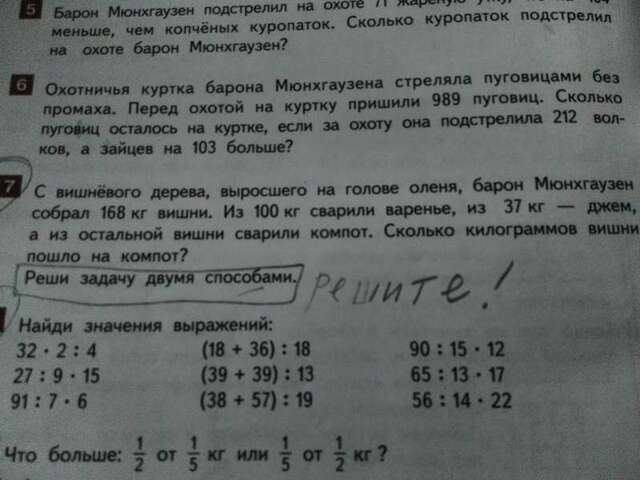 5 Барон Мюнхгаузен подстрелил на охоте 71 жареную утку,
меньше, чем копчёных куропаток. Сколько куропаток подстрелил
на охоте барон Мюнхгаузен?
6 Охотничья куртка барона Мюнхгаузена стреляла пуговицами без
промаха. Перед охотой на куртку пришили 989 пуговиц. Сколько
пуговиц осталось на куртке, если за охоту она подстрелила 212 вол-
ков, а зайцев на 103 больше?
7 С вишнёвого дерева, выросшего на голове оленя, барон Мюнхгаузен
собрал 168 кг вишни. Из 100 кг сварили варенье, из 37 кг — джем,
а из остальной вишни сварили компот. Сколько килограммов вишни
пошло на компот?
Реши задачу двумя способами. решите!
Найди значения выражений:
32 · 2 : 4 (18 + 36) : 18 90 : 15 · 12
27 : 9 · 15 (39 + 39) : 13 65 : 13 · 17
91 : 7 · 6 (38 + 57) : 19 56 : 14 · 22
Что больше: 1/2 от 1/5 кг или 1/5 от 1/2 кг?